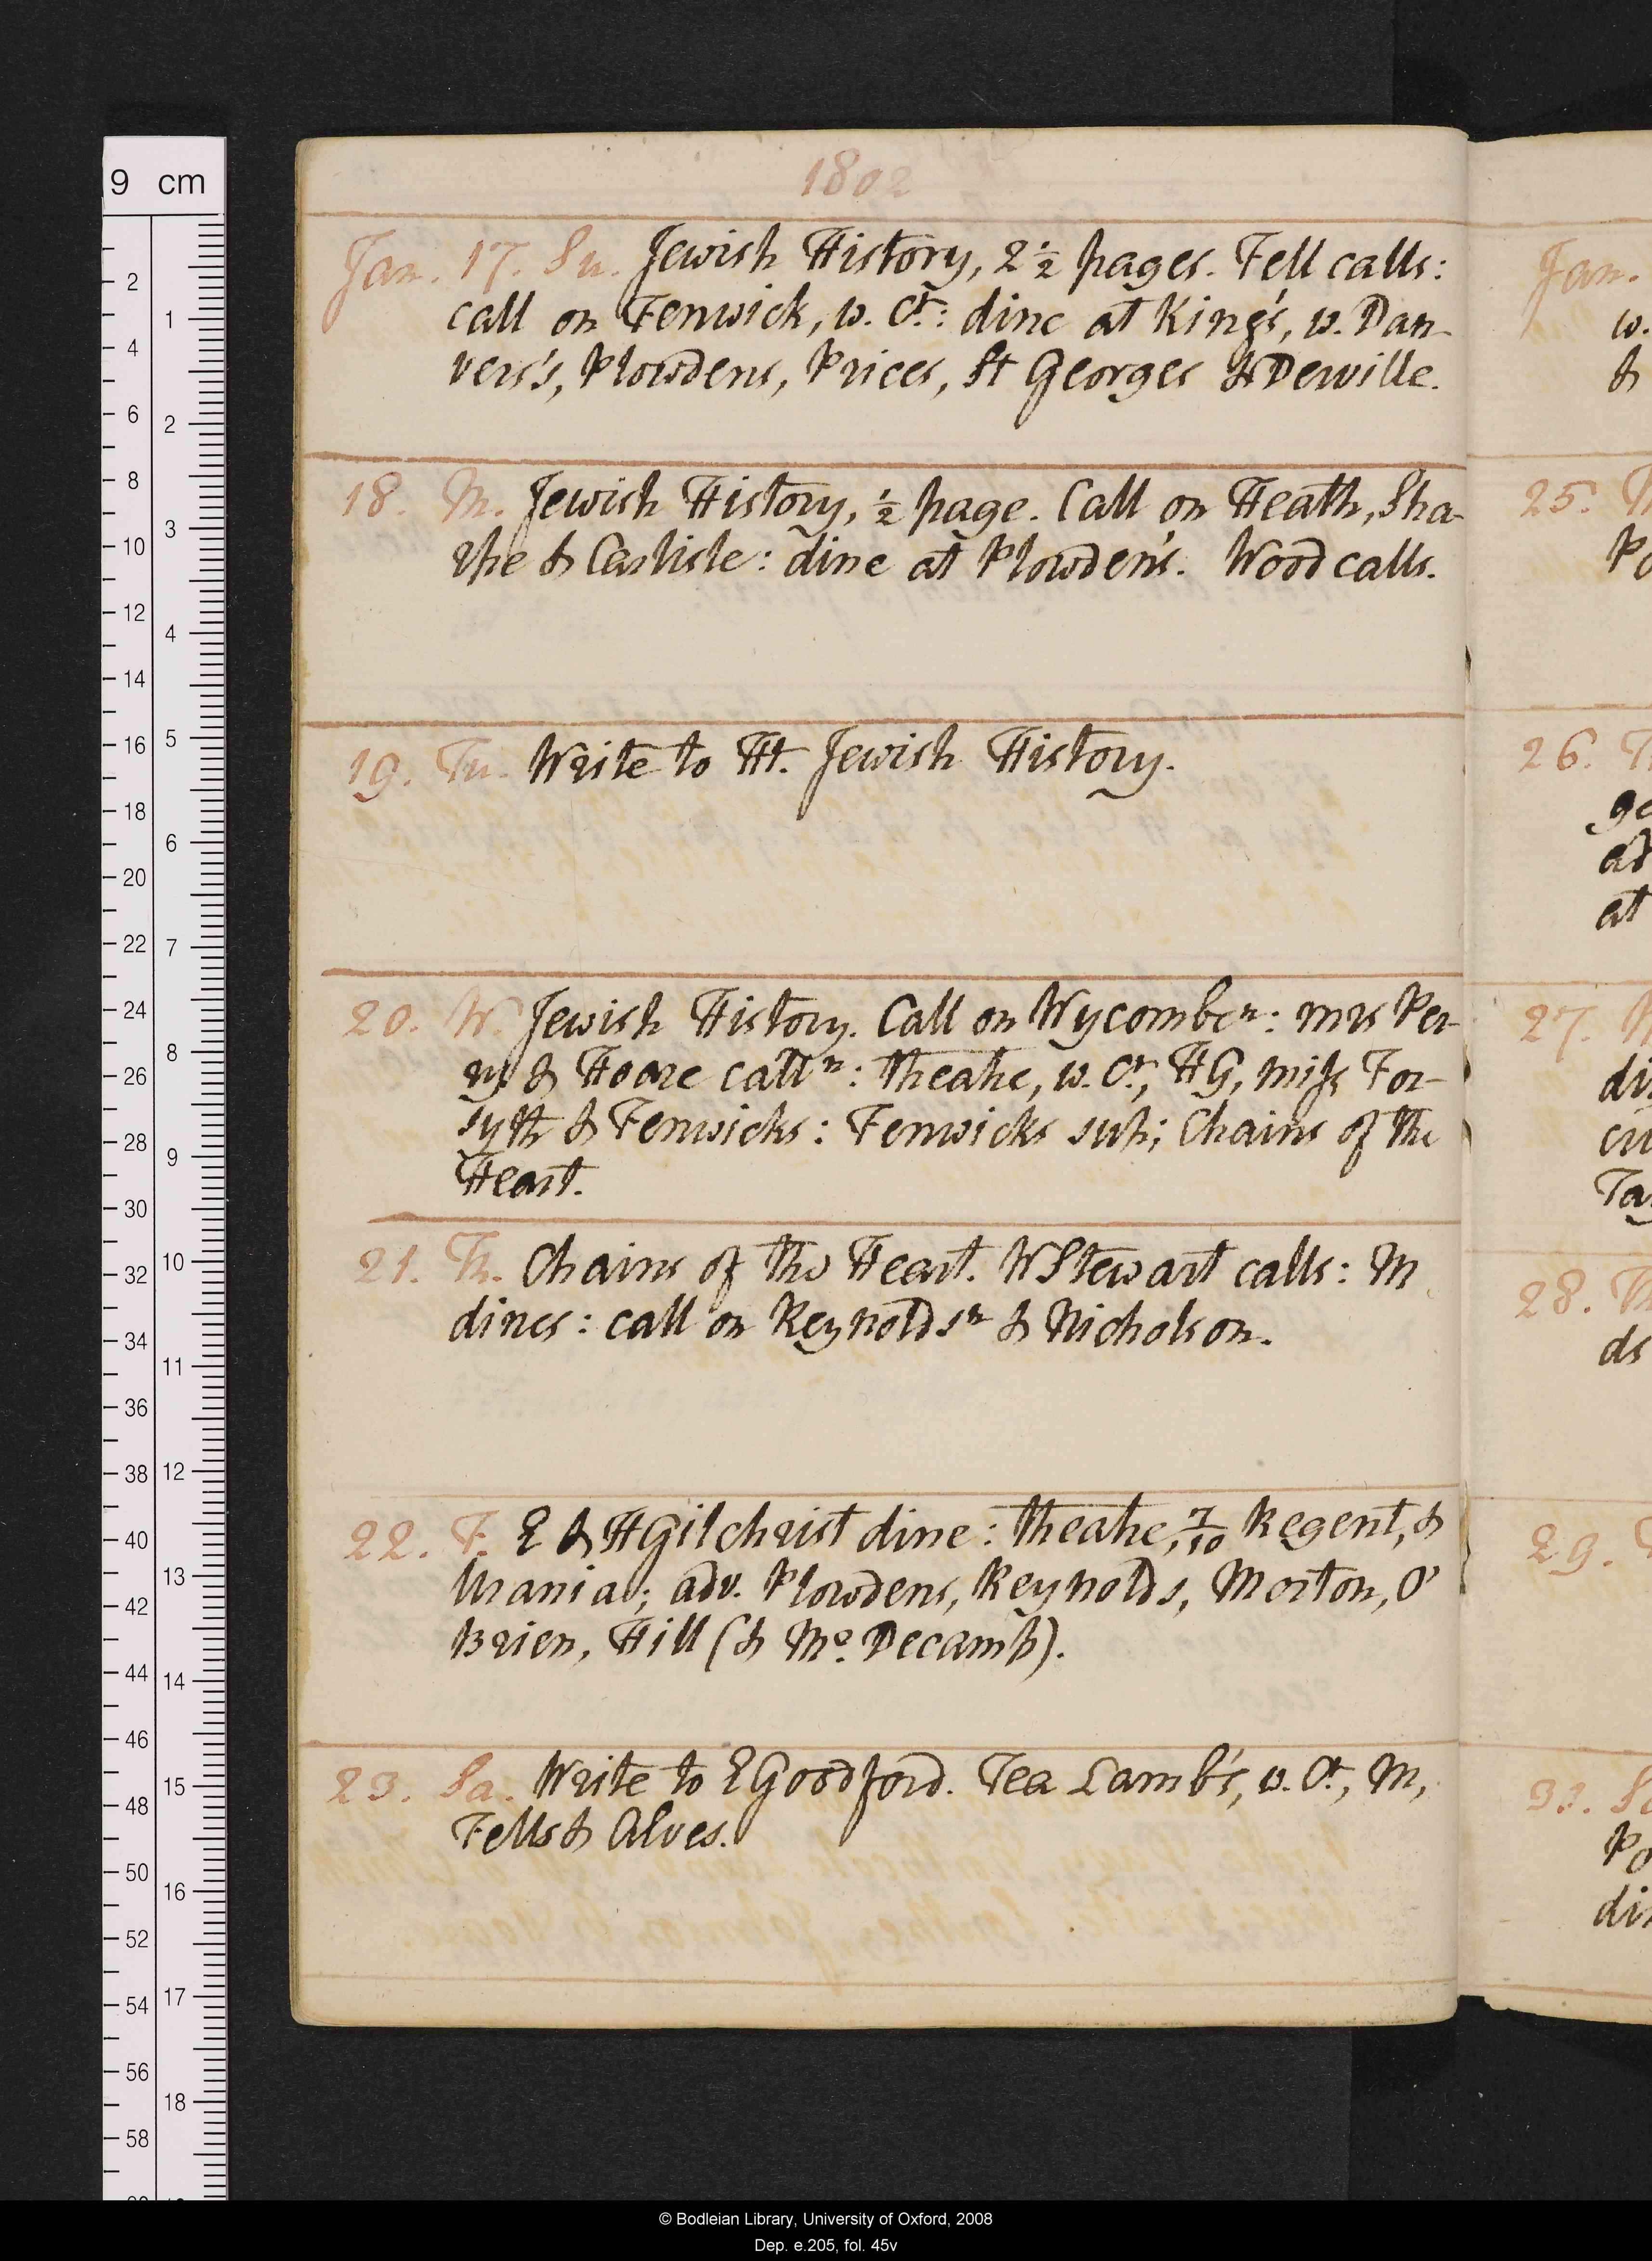 1802
Jan. 17. Su. Jewish History, 2 ½ pages. Fell calls:
call on Fenwick, w. Ct.: dine at King's, w. Dan-
vers's, Plowdens, Prices, St Georges & Dewille.
18. M. Jewish History, ½ page. Call on Heath, Sha-
rpe & Carlisle: dine at Plowden's. Wood calls.
19. Tu. Write to Ht. Jewish History.
20. W. Jewish History. Call on Wycombe n: mrs Per-
ry & Hoare call n: theatre, w. Ct, HG, miss For-
syth & Fenwicks: Fenwicks sup; Chains of the
Heart.
21. Th. Chains of the Heart. W Stewart calls: M
dines: call on Reynolds n & Nicholson.
22. F. E & H Gilchrist dine: theatre, 7/10 Regent, &
Urania; adv. Plowdens, Reynolds, Morton, O'
Brien, Hill (& Mo. Decamp).
23. Sa. Write to E Goodford. Tea Lamb's, w. Ct, M,
Fells & Alves.
Jan.
w.
&
25.
26.
at
27.
28.
ds
29.
9 cm
2
4
6
8
10
12
14
16
18
20
22
24
26
28
30
32
34
36
38
40
42
44
46
48
50
52
54
56
58
1
2
3
4
5
6
7
8
9
10
11
12
13
14
15
16
17
18
© Bodleian Library, University of Oxford, 2008
Dep. e.205, fol. 45v